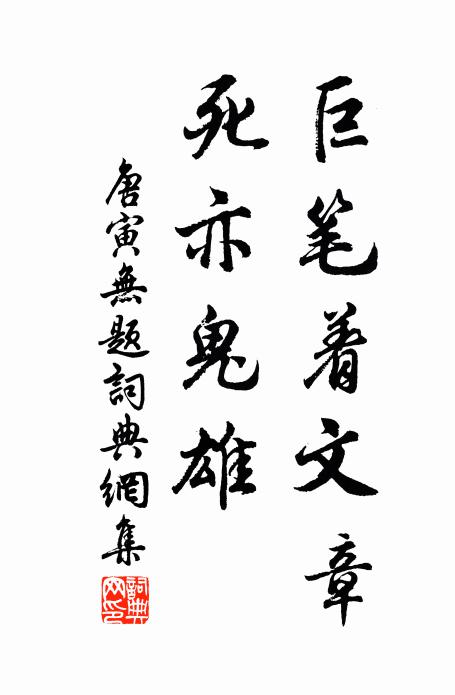 巨笔着文章
死亦鬼雄
唐寅無題詞典網集
詞典网印